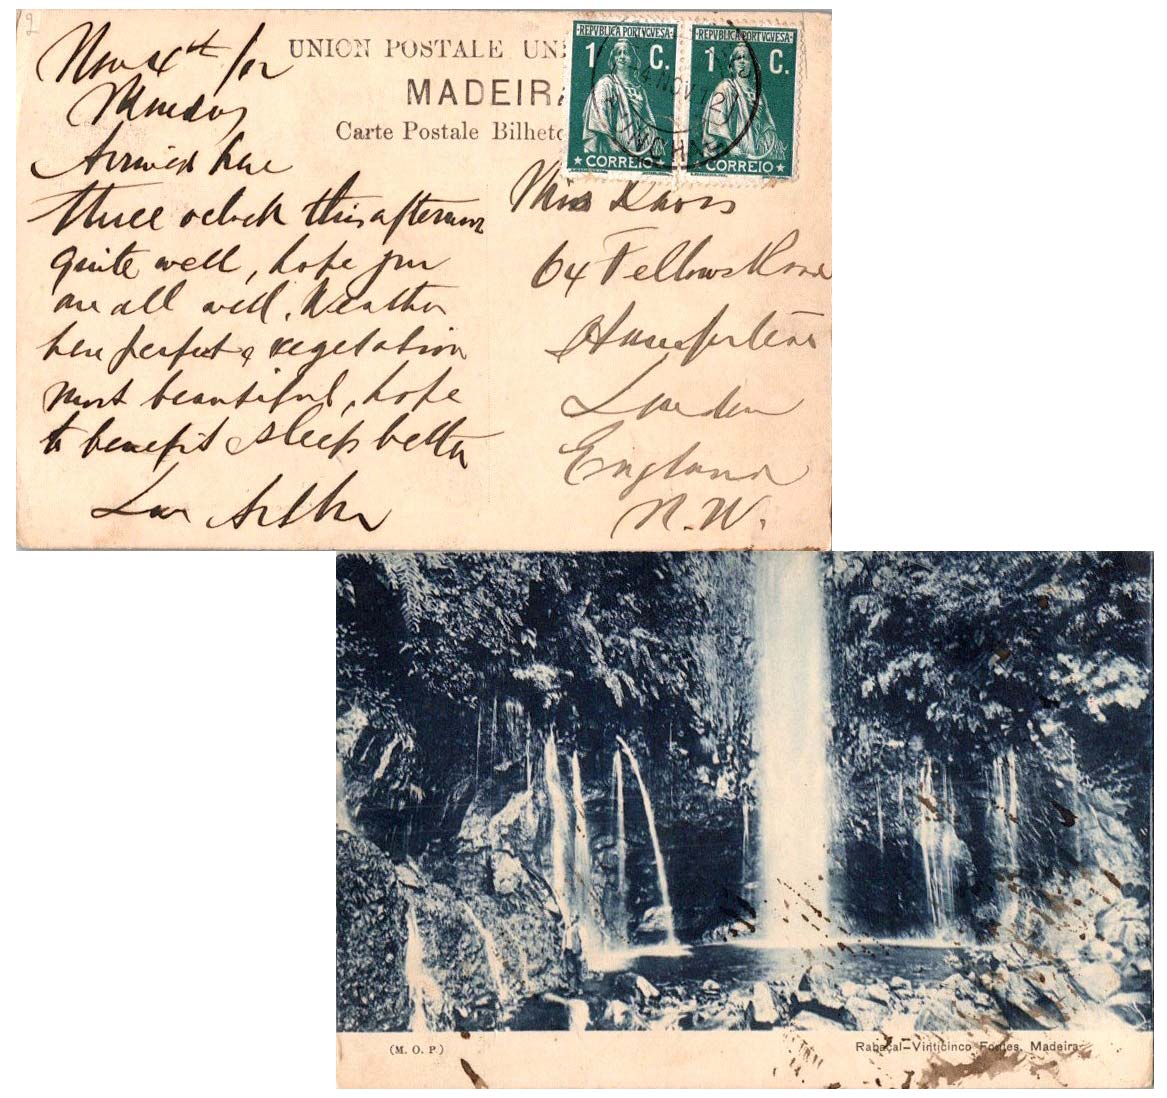 2
Nov 4th /12
Monday
Arrived here
three oclock this afternoon
quite well, hope you
are all well. Weather
here perfect & vegetation
most beautiful, hope
to benefit sleep better
Love Arthur
UNION POSTALE UNI
MADEIRA
Carte Postale Bilhete
REPVBLICA PORTVGVESA
1 C.
CORREIO
REPVBLICA PORTVGVESA
1 C.
CORREIO
-4 NOV 12
FUNCHAL
Miss Davis
64 Fellows Road
Hampstead
London
England
N.W.
(M. O. P.)
Rabaçal-Vinticinco Fontes, Madeira